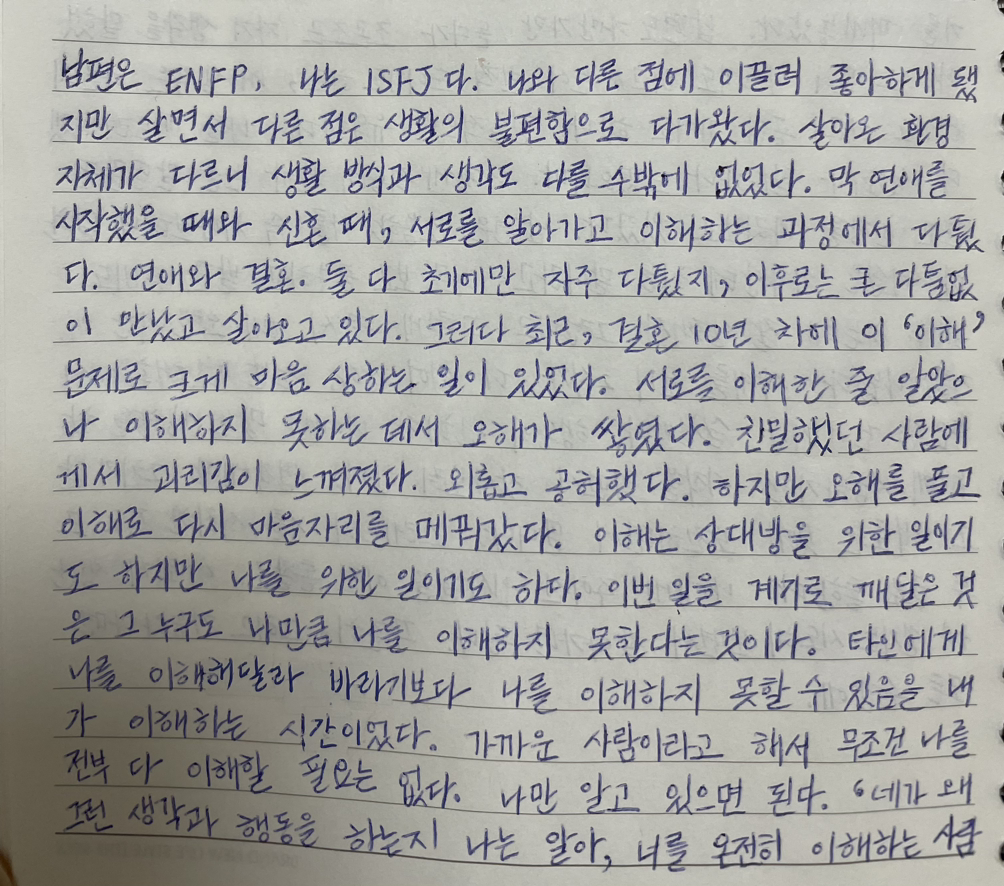 남편은 ENFP, 나는 ISFJ다. 나와 다른 점에 이끌려 좋아하게 됐
지만 살면서 다른 점은 생활의 불편함으로 다가왔다. 살아온 환경
자체가 다르니 생활 방식과 생각도 다를 수밖에 없었다. 막 연애를
시작했을 때와 신혼 때, 서로를 알아가고 이해하는 과정에서 다퉜
다. 연애와 결혼. 둘 다 초기에만 자주 다퉜지, 이후로는 큰 다툼없
이 만났고 살아오고 있다. 그러다 최근, 결혼 10년 차에 이 '이해'
문제로 크게 마음 상하는 일이 있었다. 서로를 이해한 줄 알았으
나 이해하지 못하는 데서 오해가 쌓였다. 친밀했던 사람에
게서 괴리감이 느껴졌다. 외롭고 공허했다. 하지만 오해를 풀고
이해로 다시 마음자리를 메꿔갔다. 이해는 상대방을 위한 일이기
도 하지만 나를 위한 일이기도 하다. 이번 일을 계기로 깨달은 것
은 그 누구도 나만큼 나를 이해하지 못한다는 것이다. 타인에게
나를 이해해달라 바라기보다 나를 이해하지 못할 수 있음을 내
가 이해하는 시간이었다. 가까운 사람이라고 해서 무조건 나를
전부 다 이해할 필요는 없다. 나만 알고 있으면 된다. "네가 왜
그런 생각과 행동을 하는지 나는 알아, 너를 온전히 이해하는 사람